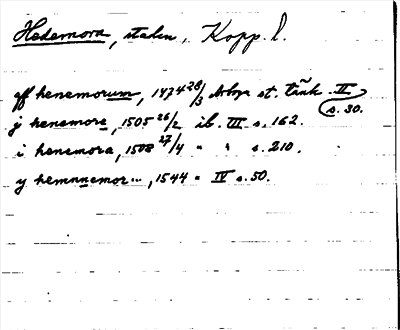 Hedemora, staden, Kopp. l.
aff henemorum, 1474 28/3 Arboga st. tänk. II s. 30.
j henemora, 1505 26/2 ib. III s. 162.
i henemora, 1508 27/4 " " s. 210.
y hemnnemor.., 1544 " IV s. 50.